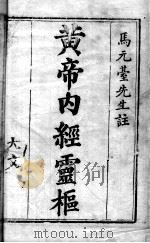 馬元臺先生註
黃帝內經靈樞
大文